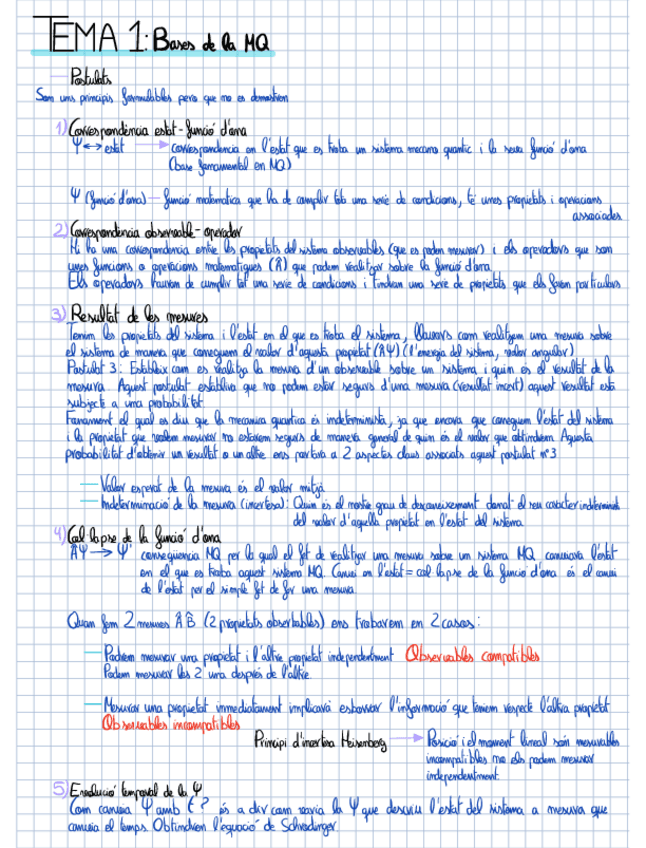 TEMA 1: Bases de la MQ
Postulats
Son uns principis formulables pero que no es demostren
1) Correspondència estat-funció d'ona
Ψ ↔ estat → correspondencia en l'estat que es troba un sistema mecano quantic i la seva funció d'ona
(base fonamental en MQ)
Ψ (funció d'ona) — funció matematica que ha de complir tob una serie de condicions, té unes propietats i operacions
associades
2) Correspondencia observable-operador
Hi ha una correspondencia entre les propietats del sistema observables (que es poden mesurar) i els operadors que son
unes funcions o operacions matematiques (Â) que podem realitzar sobre la funció d'ona.
Els operadors hauran de complir tot una serie de condicions i tindran una serie de propietats que els faran particulars
3) Resultat de les mesures
Tenim les propietats del sistema i l'estat en el que es troba el sistema, llavors com realitzem una mesura sobre
el sistema de manera que coneguem el valor d'aquesta propietat (ÂΨ) (l'energia del sistema, valor angular)
Postulat 3: Estableix com es realitza la mesura d'un observable sobre un sistema i quin es el resultat de la
mesura. Aquest postulat establira que no podem estar segurs d'una mesura (resultat incert) aquest resultat està
subjecte a una probabilitat.
Fonament el qual es diu que la mecanica quantica és indeterminista, ja que encara que coneguem l'estat del sistema
i la propietat que volem mesurar no estarem segurs de manera general de quin és el valor que obtindrem. Aquesta
probabilitat d'obtenir un resultat o un altre ens portara a 2 aspectes claus associats aquest postulat nº3
— Valor esperat de la mesura és el valor mitjà
— Indeterminació de la mesura (incertesa): Quin és el nostre grau de desconeixement donat el seu caracter indeterminat
del valor d'aquella propietat en l'estat del sistema
4) Col·lapse de la funció d'ona
ÂΨ → Ψ' consequencia MQ per la qual el fet de realitzar una mesura sobre un sistema MQ canviara l'estat
en el que es troba aquest sistema MQ. Canvi en l'estat = col·lapse de la funció d'ona és el canvi
de l'estat pel simple fet de fer una mesura.
Quan fem 2 mesures Â B̂ (2 propietats observables) ens trobarem en 2 casos:
— Podrem mesurar una propietat i l'altre propietat independentment Observables compatibles
Podem mesurar les 2 una després de l'altre
— Mesurar una propietat immediatament implicarà esborrar l'informació que teniem respecte l'altra propietat
Observables incompatibles
Principi d'incertesa Heisenberg → Posició i el moment lineal són mesurables
incompatibles no els podem mesurar
independentment
5) Evolució temporal de la Ψ
Com canvia Ψ amb t? és a dir com varia la Ψ que descriu l'estat del sistema a mesura que
canvia el temps. Obtindrem l'equació de Schrodinger